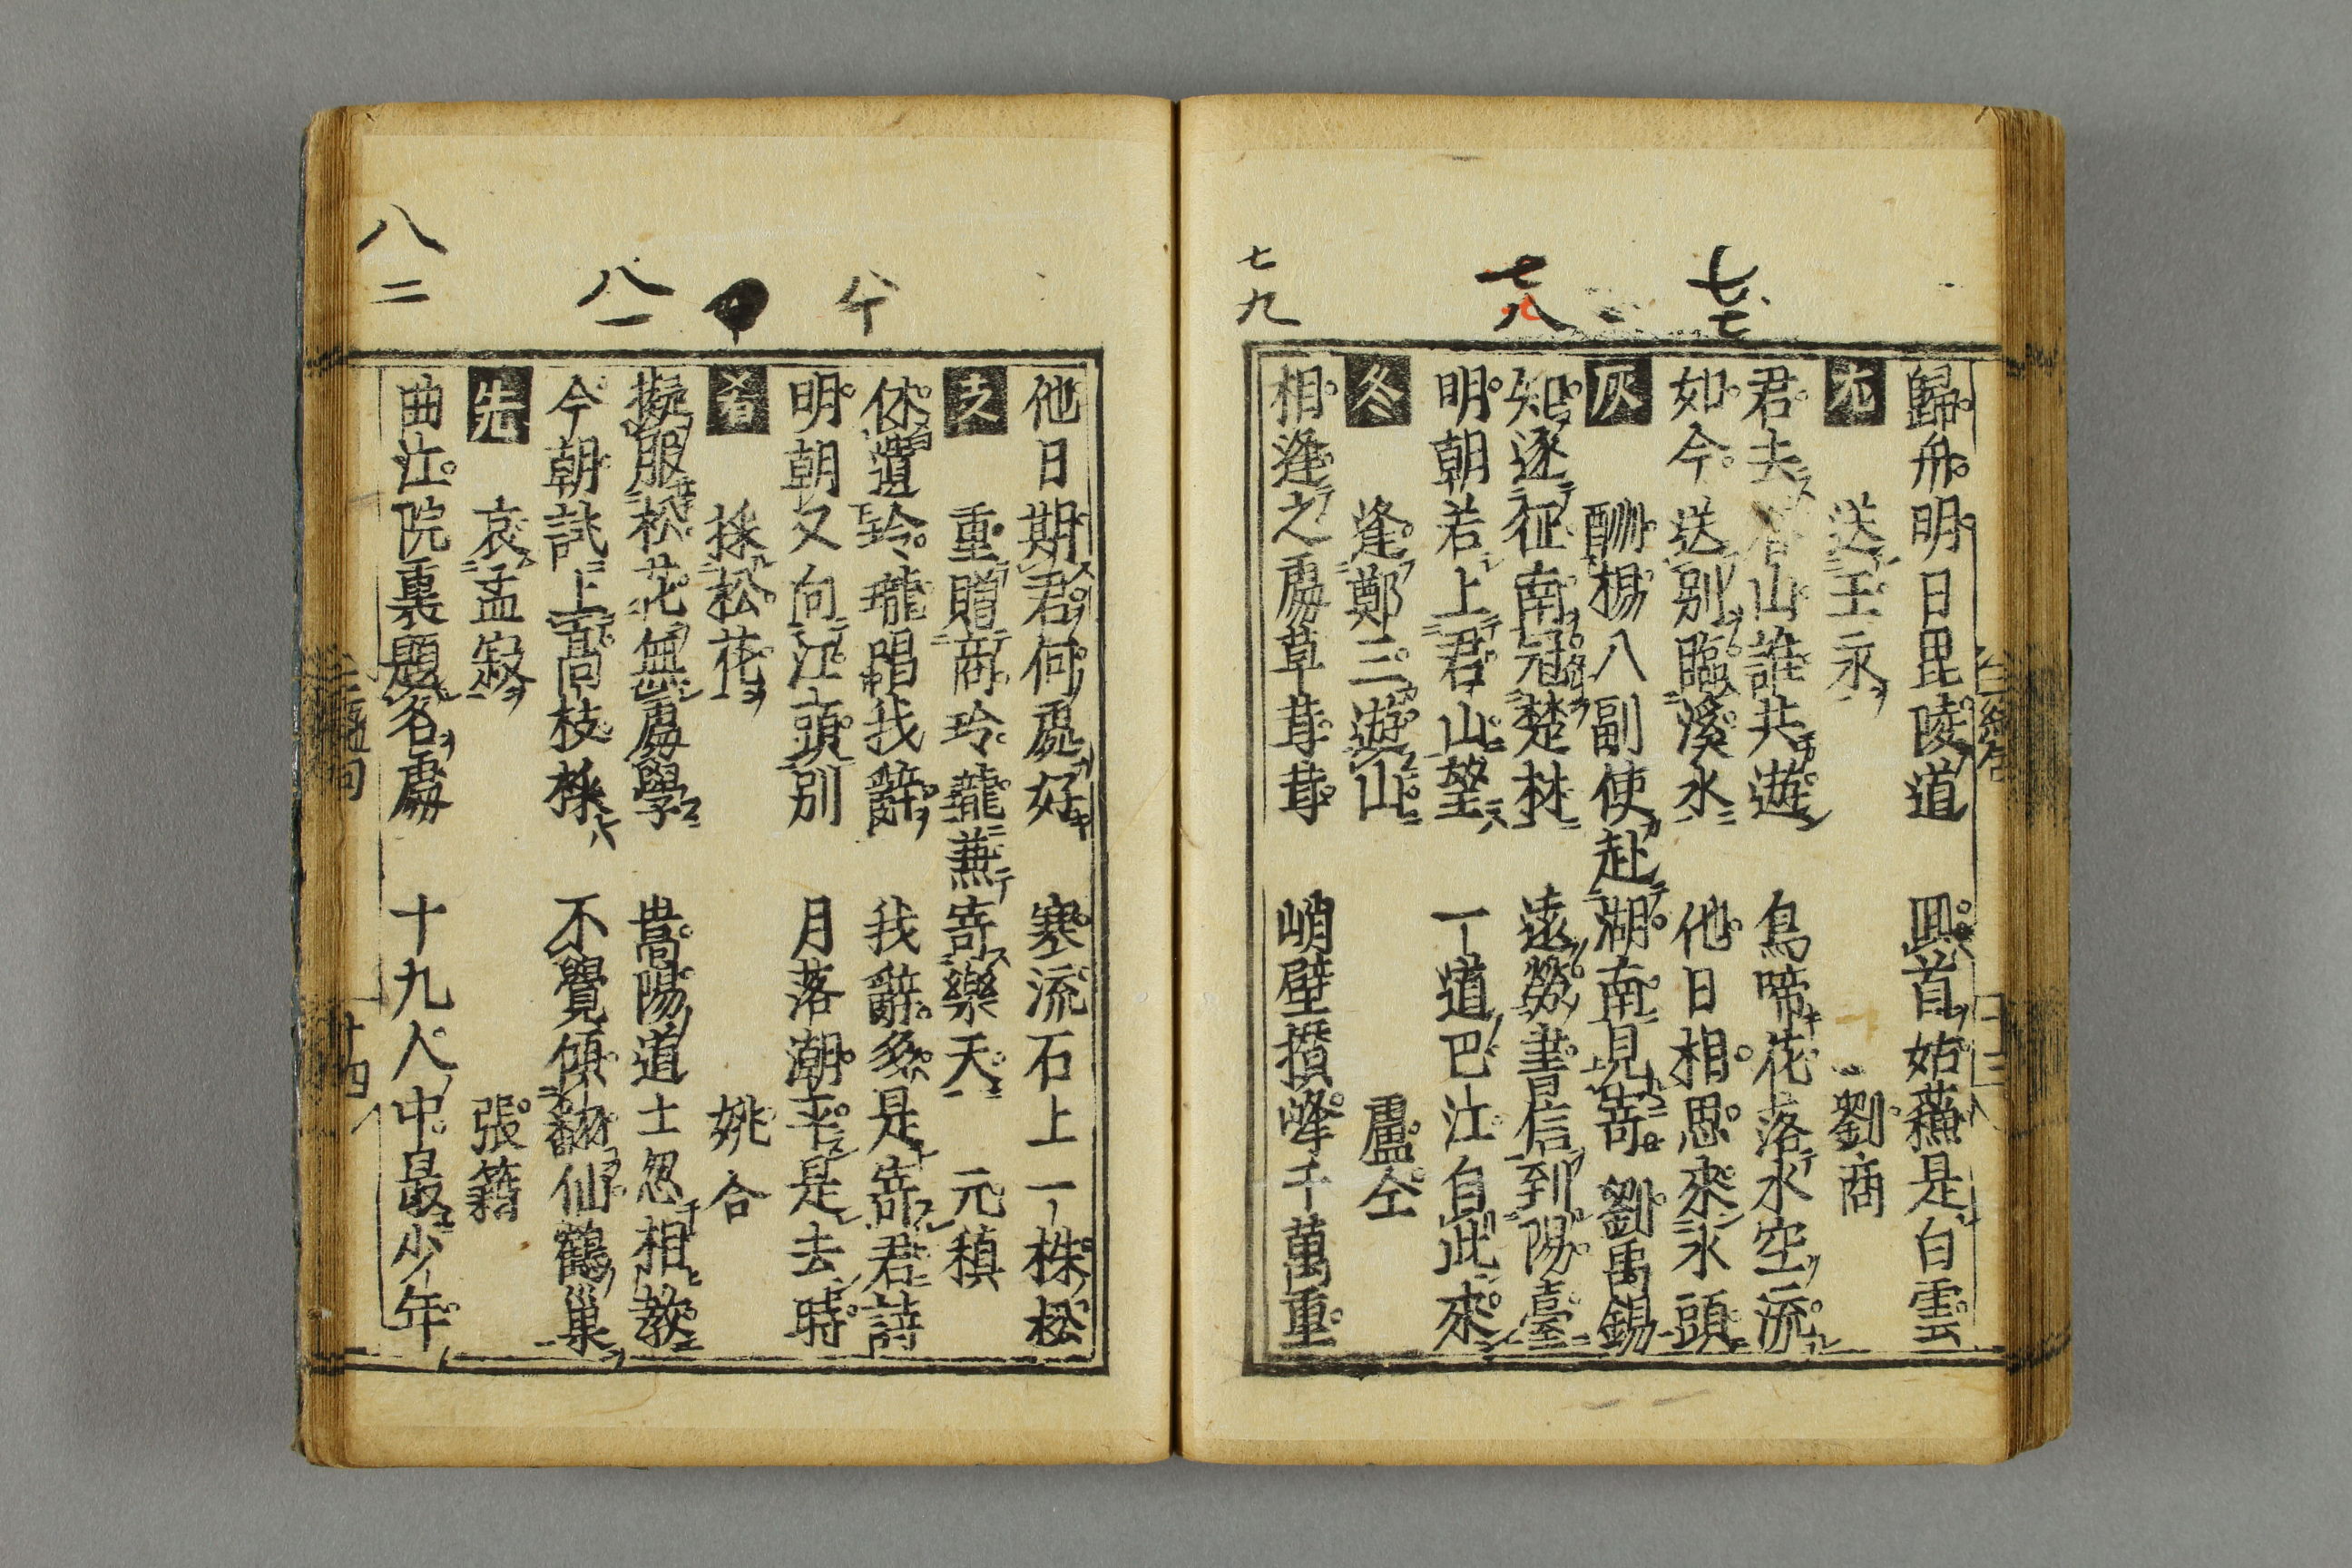 七七
七八
七九
歸舟明日毘陵道 囬首姑蘇是白雲
尤 送王永 劉商
君去春山誰共遊 鳥啼花落水空流
如今送別臨溪水 他日相思來水頭
灰 酬楊八副使赴湖南見寄 劉禹錫
知逐征南冠楚材 遠勞書信到陽臺
明朝若上君山望 一道巴江自此來
冬 逢鄭三遊山 盧仝
相逢之處草茸茸 峭壁攢峰千萬重
八十
八一
八二
他日期君何處好 寒流石上一株松
支 重贈商玲瓏兼寄樂天 元稹
休遣玲瓏唱我辭 我辭多是寄君詩
明朝又向江頭別 月落潮平是去時
肴 採松花 姚合
擬服松花無處學 嵩陽道士忽相教
今朝試上高枝採 不覺傾翻仙鶴巢
先 哀孟寂 張籍
曲江院裏題名處 十九人中最少年
十四